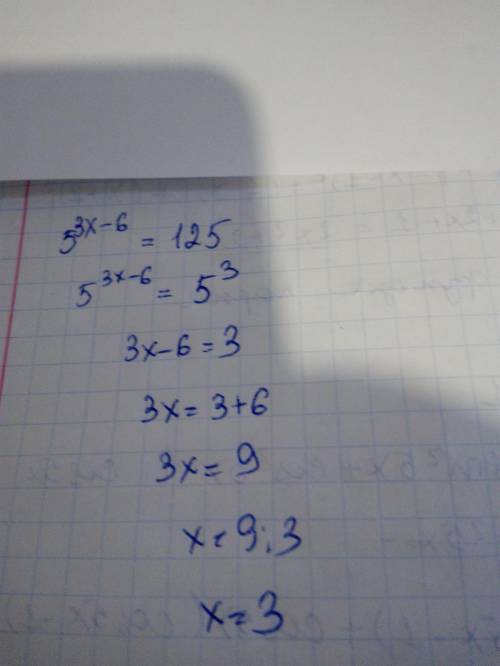 5^{3x-6} = 125
5^{3x-6} = 5^3
3x-6 = 3
3x = 3+6
3x = 9
x = 9:3
x = 3